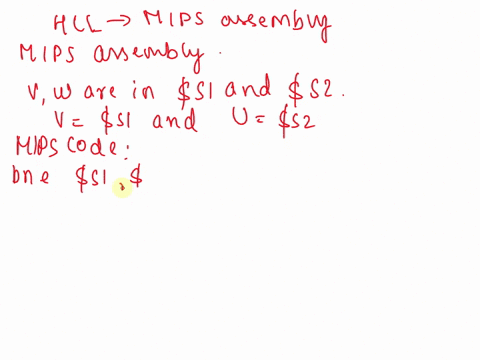 HLL → MIPS assembly
MIPS assembly.
V, W are in $S1 and $S2.
V = $S1 and U = $S2
MIPS Code:
bne $S1, $